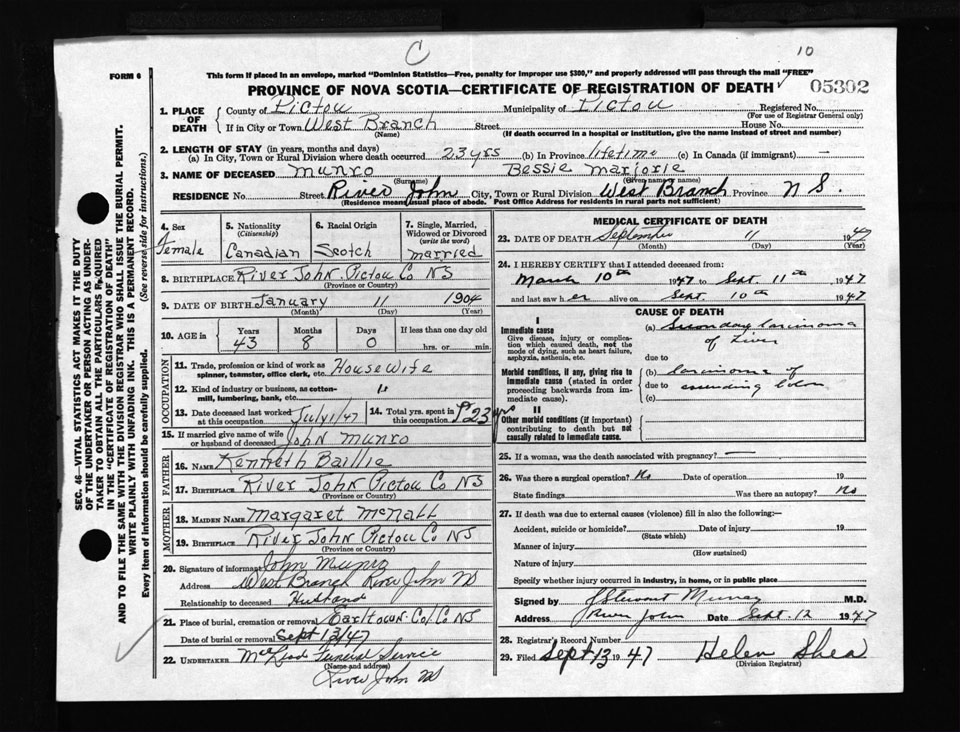 C
10
FORM 6
This form if placed in an envelope, marked "Dominion Statistics—Free, penalty for improper use $300," and properly addressed will pass through the mail "FREE"
PROVINCE OF NOVA SCOTIA—CERTIFICATE OF REGISTRATION OF DEATH
05302
1. PLACE OF DEATH
County of Pictou Municipality of Pictou Registered No.
(For use of Registrar General only)
If in City or Town West Branch Street House No.
(Name) (If death occurred in a hospital or institution, give the name instead of street and number)
2. LENGTH OF STAY (in years, months and days)
(a) In City, Town or Rural Division where death occurred 23 yrs (b) In Province lifetime (c) In Canada (if immigrant) —
3. NAME OF DECEASED Munro Bessie Marjorie
(Surname) (Given name or names)
RESIDENCE No. Street River John City, Town or Rural Division West Branch Province N S.
(Residence means usual place of abode. Post Office Address for residents in rural parts not sufficient)
4. Sex
Female
5. Nationality
(Citizenship)
Canadian
6. Racial Origin
Scotch
7. Single, Married, Widowed or Divorced
(write the word)
Married
8. BIRTHPLACE River John Pictou Co NS
(Province or Country)
9. DATE OF BIRTH January 11 1904
(Month) (Day) (Year)
10. AGE in
Years Months Days If less than one day old
43 8 0 hrs. or min.
OCCUPATION
11. Trade, profession or kind of work as
spinner, teamster, office clerk, etc. Housewife
12. Kind of industry or business, as cotton-
mill, lumbering, bank, etc. "
13. Date deceased last worked
at this occupation July 1/47
14. Total yrs. spent in
this occupation 23 yrs
15. If married give name of wife
or husband of deceased John Munro
FATHER
16. NAME Kenneth Baillie
17. BIRTHPLACE River John Pictou Co NS
(Province or Country)
MOTHER
18. MAIDEN NAME Margaret McNab
19. BIRTHPLACE River John Pictou Co NS
(Province or Country)
20. Signature of informant John Munro
Address West Branch River John NS
Relationship to deceased Husband
21. Place of burial, cremation or removal Earltown Col Co NS
Date of burial or removal Sept 13/47
22. UNDERTAKER McLeod Funeral Service
(Name and address)
River John NS
MEDICAL CERTIFICATE OF DEATH
23. DATE OF DEATH September 11 1947
(Month) (Day) (Year)
24. I HEREBY CERTIFY that I attended deceased from
March 10th 1947 to Sept. 11th 1947
and last saw her alive on Sept. 10th 1947
CAUSE OF DEATH
I
Immediate cause
Give disease, injury or complica-
tion which caused death, not the
mode of dying, such as heart failure,
asphyxia, asthenia, etc.
(a) Secondary Carcinoma
of Liver
due to
Morbid conditions, if any, giving rise to
immediate cause (stated in order
proceeding backwards from im-
mediate cause).
(b) Carcinoma of
due to ascending Colon
(c)
II
Other morbid conditions (if important)
contributing to death but not
causally related to immediate cause.
25. If a woman, was the death associated with pregnancy? —
26. Was there a surgical operation? No Date of operation 19
State findings Was there an autopsy? No
27. If death was due to external causes (violence) fill in also the following:—
Accident, suicide or homicide? Date of injury 19
(State which)
Manner of injury
(How sustained)
Nature of injury
Specify whether injury occurred in industry, in home, or in public place
Signed by J Stewart Murray M.D.
Address River John Date Sept. 12 1947
28. Registrar's Record Number
29. Filed Sept 13 1947 Helen Shea
(Division Registrar)
SEC. 46—VITAL STATISTICS ACT MAKES IT THE DUTY
OF THE UNDERTAKER OR PERSON ACTING AS UNDER-
TAKER TO OBTAIN ALL THE PARTICULARS REQUIRED
IN THE "CERTIFICATE OF REGISTRATION OF DEATH"
AND TO FILE THE SAME WITH THE DIVISION REGISTRAR WHO SHALL ISSUE THE BURIAL PERMIT.
WRITE PLAINLY WITH UNFADING INK. THIS IS A PERMANENT RECORD.
Every item of information should be carefully supplied. (See reverse side for instructions.)